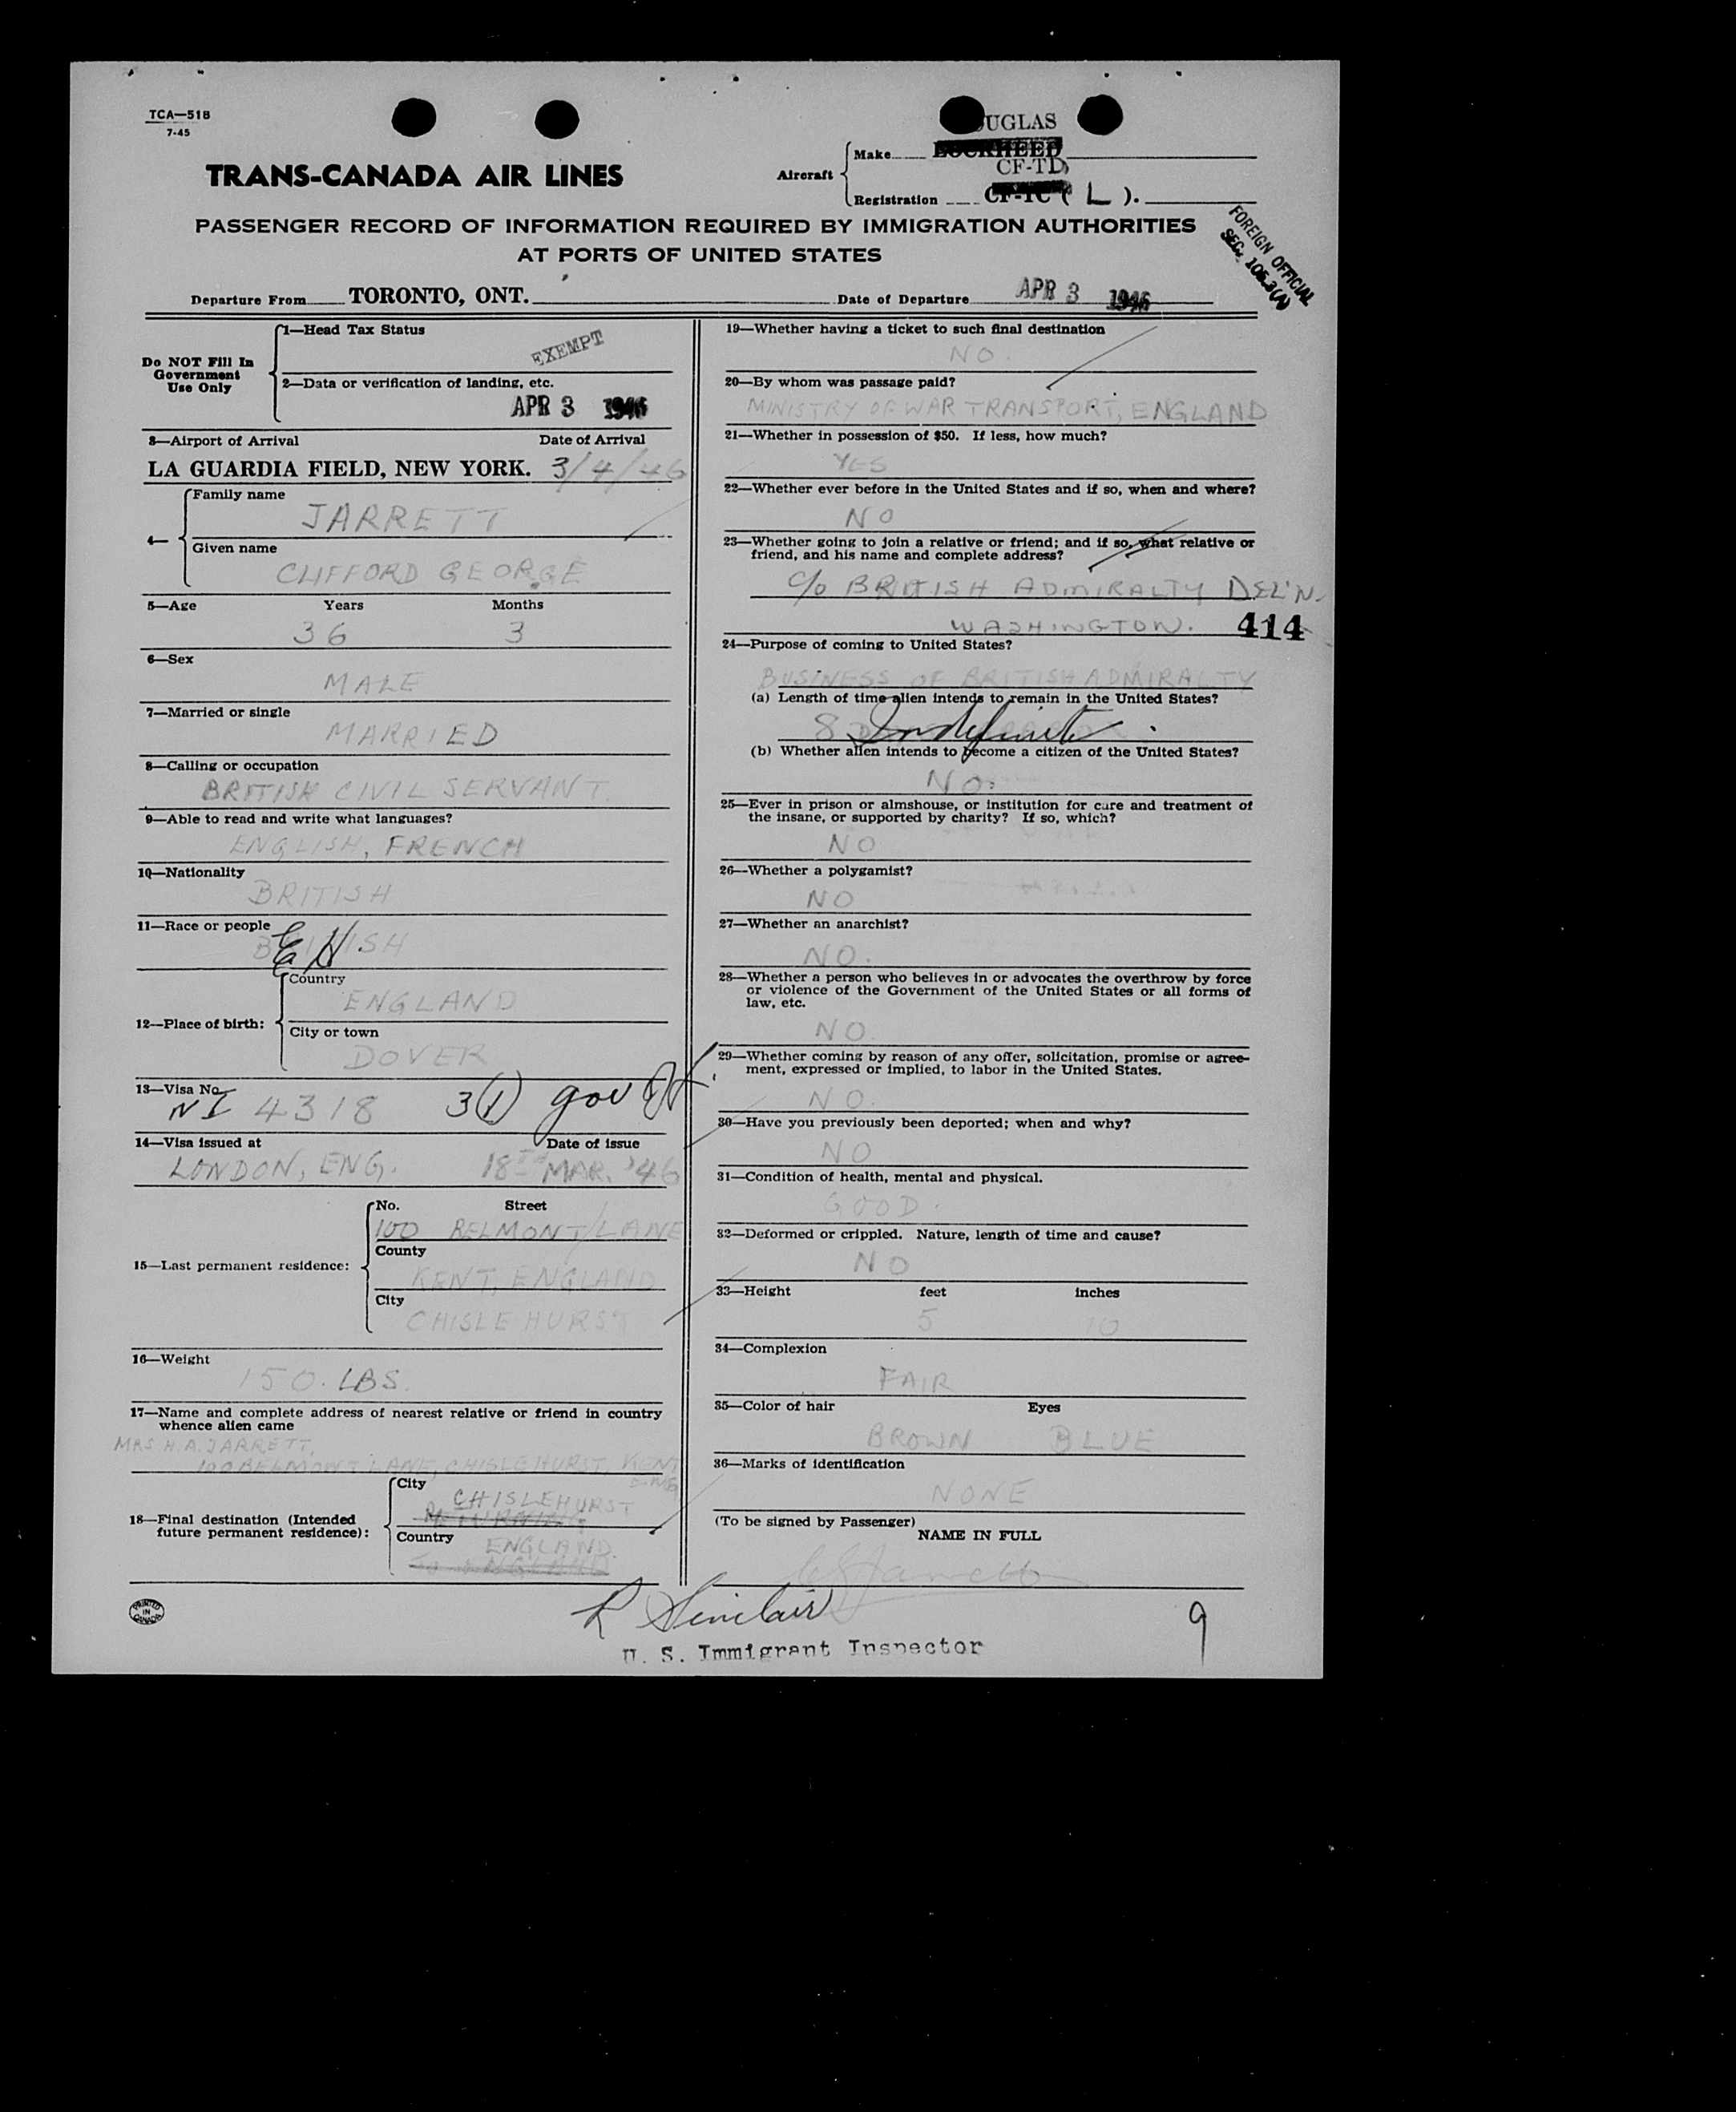 TCA—518
7-45
UGLAS
TRANS-CANADA AIR LINES
Aircraft
Make LOCKHEED
CF-TD
Registration CF-TC ( L ).
PASSENGER RECORD OF INFORMATION REQUIRED BY IMMIGRATION AUTHORITIES
AT PORTS OF UNITED STATES
FOREIGN OFFICIAL
SEC. 105.3(A)
Departure From TORONTO, ONT. Date of Departure APR 3 1946
Do NOT Fill In
Government
Use Only
1—Head Tax Status
EXEMPT
2—Data or verification of landing, etc.
APR 3 1946
3—Airport of Arrival Date of Arrival
LA GUARDIA FIELD, NEW YORK. 3/4/46
4—
Family name
JARRETT
Given name
CLIFFORD GEORGE
5—Age Years Months
36 3
6—Sex
MALE
7—Married or single
MARRIED
8—Calling or occupation
BRITISH CIVIL SERVANT.
9—Able to read and write what languages?
ENGLISH, FRENCH
10—Nationality
BRITISH
11—Race or people
BRITISH
12—Place of birth:
Country
ENGLAND
City or town
DOVER
13—Visa No.
NI 4318 3(1) gov
14—Visa issued at Date of issue
LONDON, ENG. 18TH MAR. '46
15—Last permanent residence:
No. Street
100 BELMONT LANE
County
KENT, ENGLAND
City
CHISLEHURST
16—Weight
150. LBS.
17—Name and complete address of nearest relative or friend in country
whence alien came
MRS H.A. JARRETT,
100 BELMONT LANE, CHISLEHURST, KENT
ENG
18—Final destination (Intended
future permanent residence):
City
CHISLEHURST
Country
ENGLAND.
ENGLAND
19—Whether having a ticket to such final destination
NO.
20—By whom was passage paid?
MINISTRY OF WAR TRANSPORT, ENGLAND
21—Whether in possession of $50. If less, how much?
YES
22—Whether ever before in the United States and if so, when and where?
NO
23—Whether going to join a relative or friend; and if so, what relative or
friend, and his name and complete address?
C/o BRITISH ADMIRALTY DEL'N.
WASHINGTON. 414
24—Purpose of coming to United States?
BUSINESS OF BRITISH ADMIRALTY
(a) Length of time alien intends to remain in the United States?
8 Indefinite
(b) Whether alien intends to become a citizen of the United States?
NO.
25—Ever in prison or almshouse, or institution for care and treatment of
the insane, or supported by charity? If so, which?
NO
26—Whether a polygamist?
NO
27—Whether an anarchist?
NO.
28—Whether a person who believes in or advocates the overthrow by force
or violence of the Government of the United States or all forms of
law, etc.
NO.
29—Whether coming by reason of any offer, solicitation, promise or agree-
ment, expressed or implied, to labor in the United States.
NO.
30—Have you previously been deported; when and why?
NO
31—Condition of health, mental and physical.
GOOD.
32—Deformed or crippled. Nature, length of time and cause?
NO
33—Height feet inches
5 10
34—Complexion
FAIR
35—Color of hair Eyes
BROWN BLUE
36—Marks of identification
NONE
(To be signed by Passenger)
NAME IN FULL
CGJarrett
PRINTED
IN
CANADA
R Sinclair
U. S. Immigrant Inspector
9